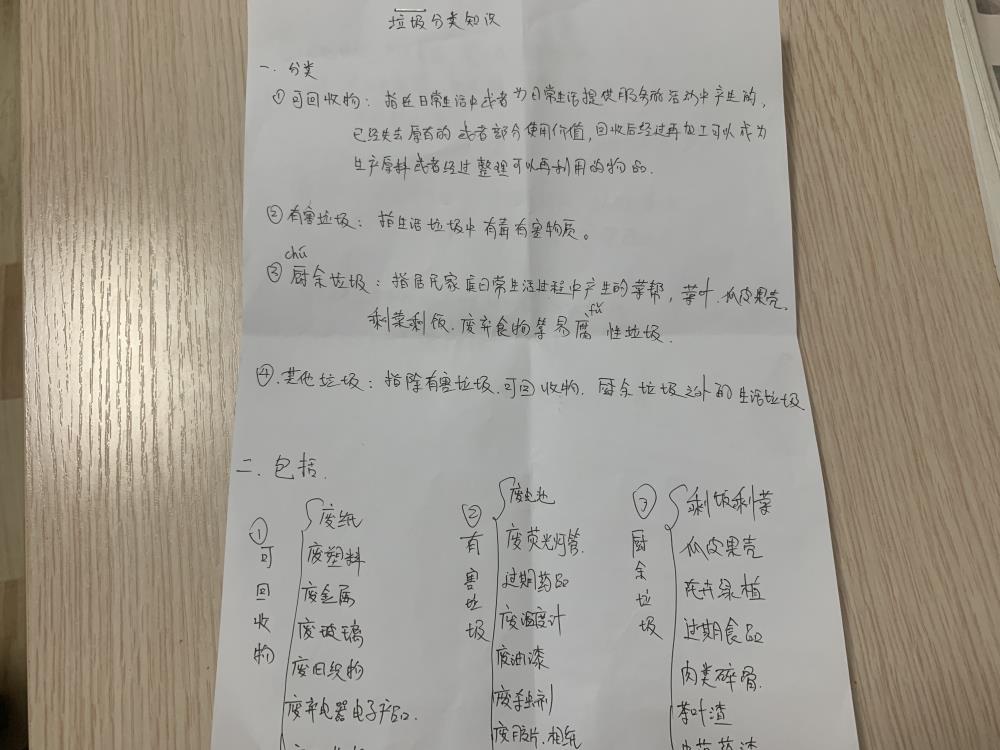 垃圾分类知识
一.分类
①可回收物：指在日常生活中或者为日常生活提供服务的活动中产生的，
已经失去原有的或者部分使用价值，回收后经过再加工可以成为
生产原料或者经过整理可以再利用的物品.
②有害垃圾：指生活垃圾中有毒有害物质。
chú
③厨余垃圾：指居民家庭日常生活过程中产生的菜帮，菜叶.瓜皮果壳.
fǔ
剩菜剩饭.废弃食物等易腐性垃圾.
④.其他垃圾：指除有害垃圾.可回收物.厨余垃圾之外的生活垃圾
二.包括.
①可回收物
废纸
废塑料
废金属
废玻璃
废旧织物
废弃电器电子产品.
②有害垃圾
废电池
废荧光灯管.
过期药品
废温度计
废油漆
废杀虫剂
废胶片.相纸
③厨余垃圾
剩饭剩菜
瓜皮果壳
花卉绿植
过期食品
肉类碎骨.
茶叶渣